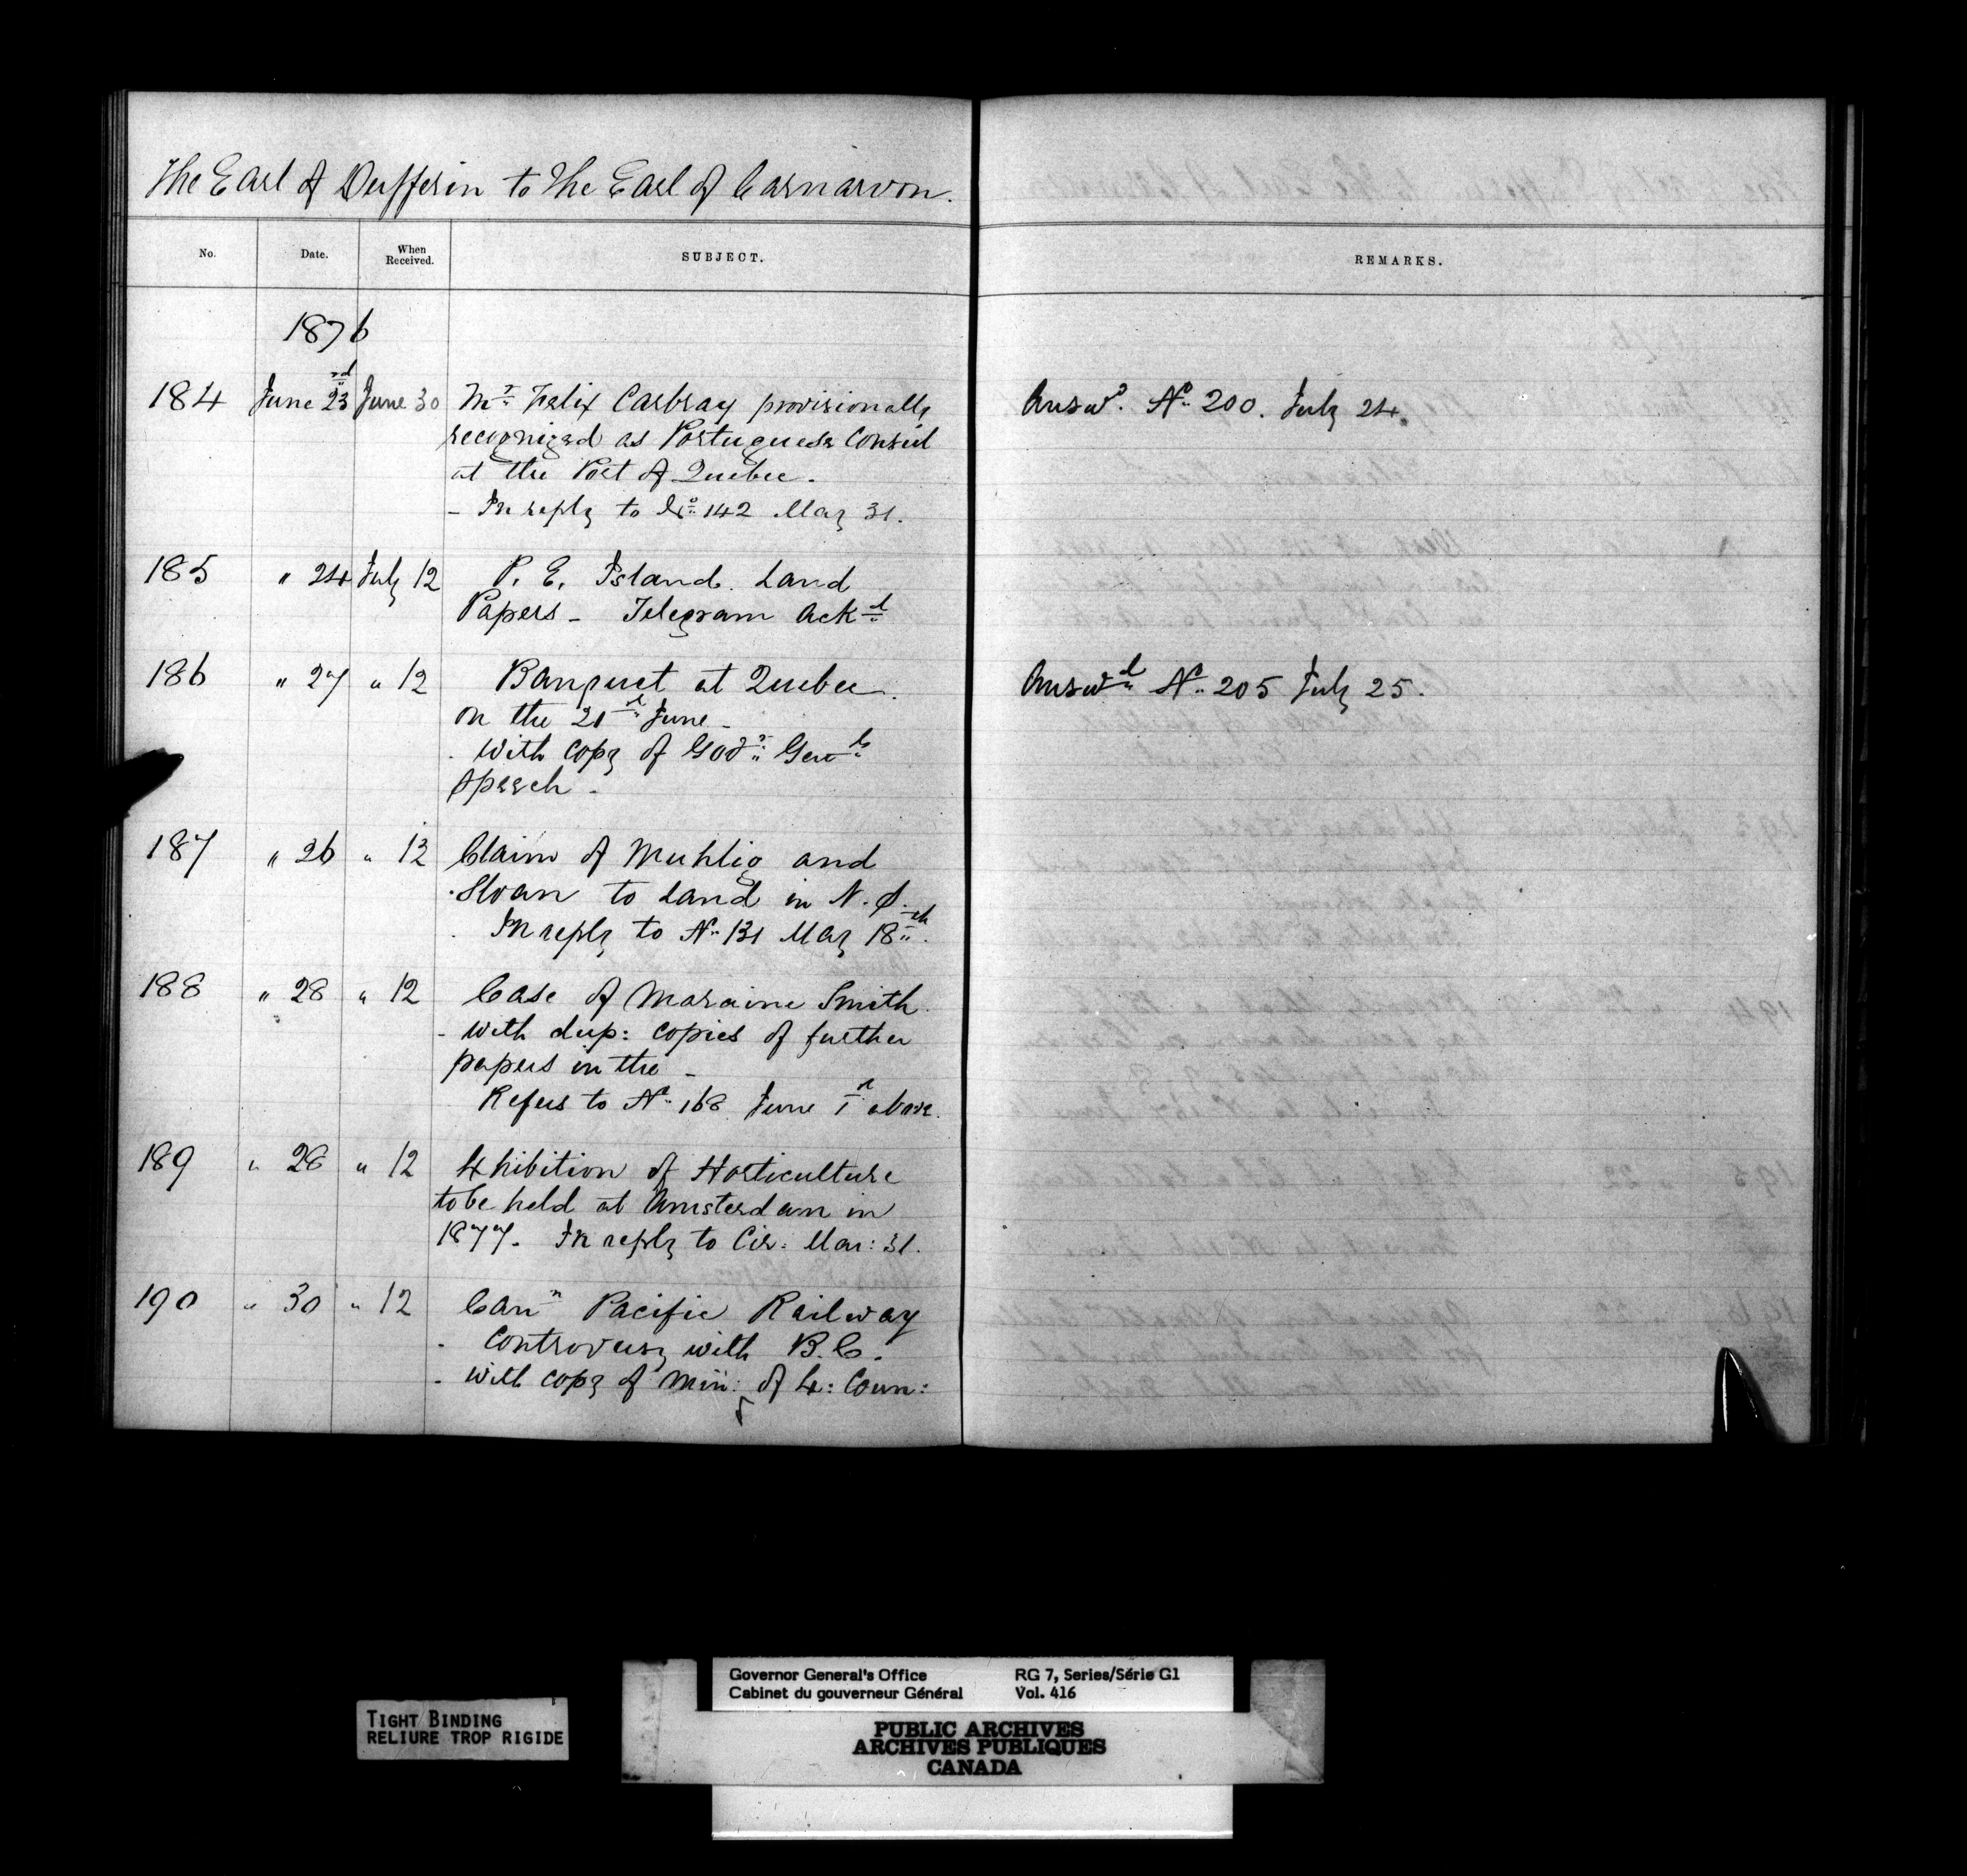 The Earl of Dufferin to The Earl of Carnarvon.
No. Date. When Received. SUBJECT. REMARKS.
1876
184 June 23rd June 30 Mr. Felix Carbray provisionally Answd. No. 200. July 24.
recognized as Portuguese Consul
at the Port of Quebec.
- In reply to No. 142 May 31.
185 " 24 July 12 P. E. Island Land
Papers - Telegram Ackd
186 " 27 " 12 Banquet at Quebec. Answd No. 205 July 25.
on the 21st June -
. With copy of Govr. Genls
Speech -
187 " 26 " 12 Claim of Muhlig and
Sloan to Land in N. S.
. In reply to No. 131 May 18th.
188 " 28 " 12 Case of Moraine Smith.
- With dup: copies of further
papers in the -
Refers to No. 168 June 1st above.
189 " 28 " 12 Exhibition of Horticulture
to be held at Amsterdam in
1877. In reply to Cir: Mar: 31.
190 " 30 " 12 Cann Pacific Railway
- Controversy with B.C.
- With copy of Min: of Ex: Coun:
TIGHT BINDING
RELIURE TROP RIGIDE
Governor General's Office RG 7, Series/Série G1
Cabinet du gouverneur Général Vol. 416
PUBLIC ARCHIVES
ARCHIVES PUBLIQUES
CANADA